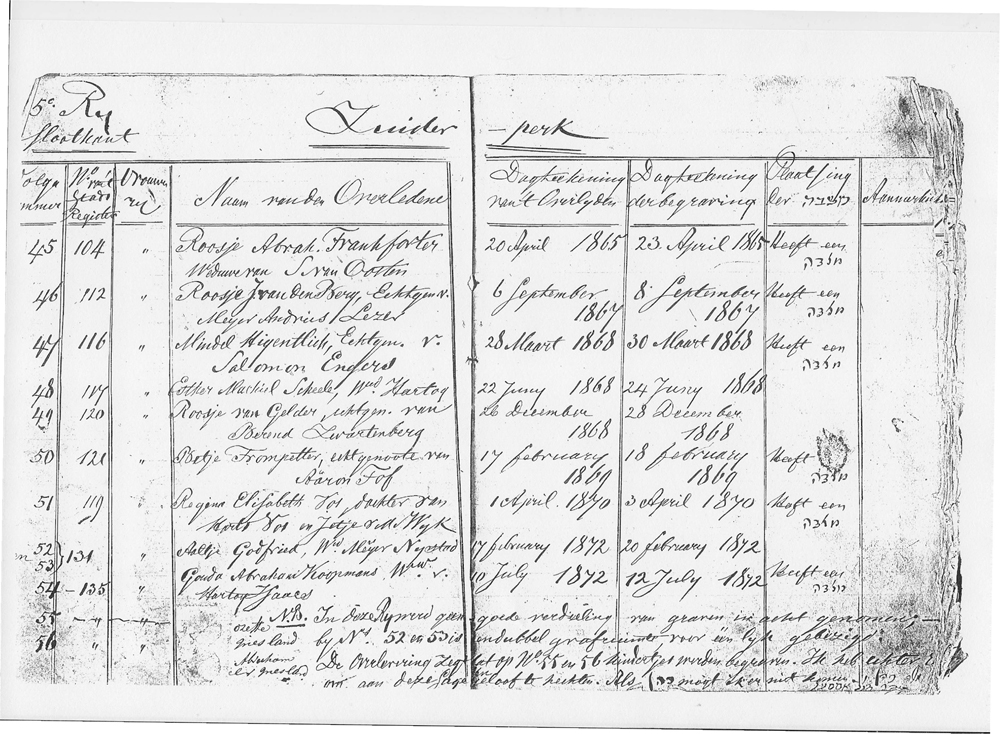 5e. Ry
Slootkant
Zuider - perk
Volge No van't Vrouwen Naam van den Overledene Dagteekening Dagteekening Plaatsing Aanmerk
nummer Stads rey van't Overlyden der begraving der מצבה
Register
45 104 " Roosje Abrah. Frankforter 20 April 1865 23 April 1865 Heeft een
Weduwe van S. van Oosten מצבה
46 112 " Roosje J. van den Berg, Echtgen. v. 6 September 8 September Heeft een
Meyer Andries Lezer 1867 1867 מצבה
47 116 " Mindel Eigentlich, Echtgen. v. 28 Maart 1868 30 Maart 1868 Heeft een
Salomon Engers מצבה
48 117 " Esther Machiel Scheele, Wed Hartog 22 Juny 1868 24 Juny 1868
49 120 " Roosje van Gelder, echtgen. van 26 December 28 December
Berend Zwartenberg 1868 1868
50 121 " Betje Trompetter, echtgenoote van 17 february 18 february Heeft
Aäron Fof 1869 1869 מצבה
51 119 " Regina Elisabeth Vos, dochter van 1 April 1870 3 April 1870 Heeft een
Vos en Jetje v. d. Wyk מצבה
52 131 " Aaltje Godfried, Wed Meyer Nystad 17 february 1872 20 february 1872
53
54 - 135 " Gonda Abraham Koopmans Wed v. 10 July 1872 12 July 1872 Heeft een
Hartog Isaacs מצבה
55 - " - " N.B. In deze Ry werd geen goede verdeeling van graven in acht genomen -
56 " " by No. 52 en 53 is een dubbel grafruimte voor een lyk gebezigd.
Abraham De overlevering zegt dat op No 55 en 56 kindertjes werden begraven. Ik heb echter
om aan deze geloof te hechten. Als mogt ik er niet komen